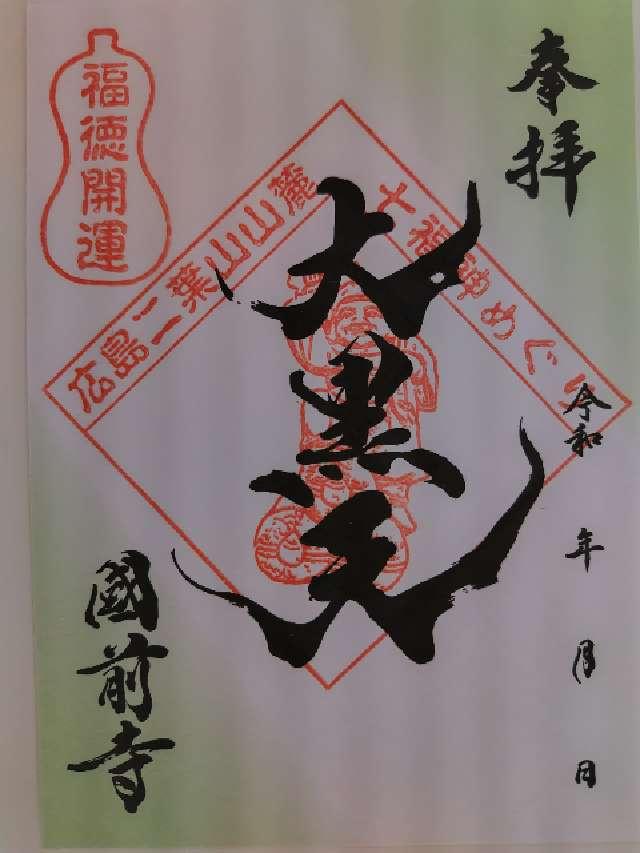 奉拝
令和 年 月 日
大黒天
國前寺
福徳開運
広島二葉山山麓
七福神めぐり